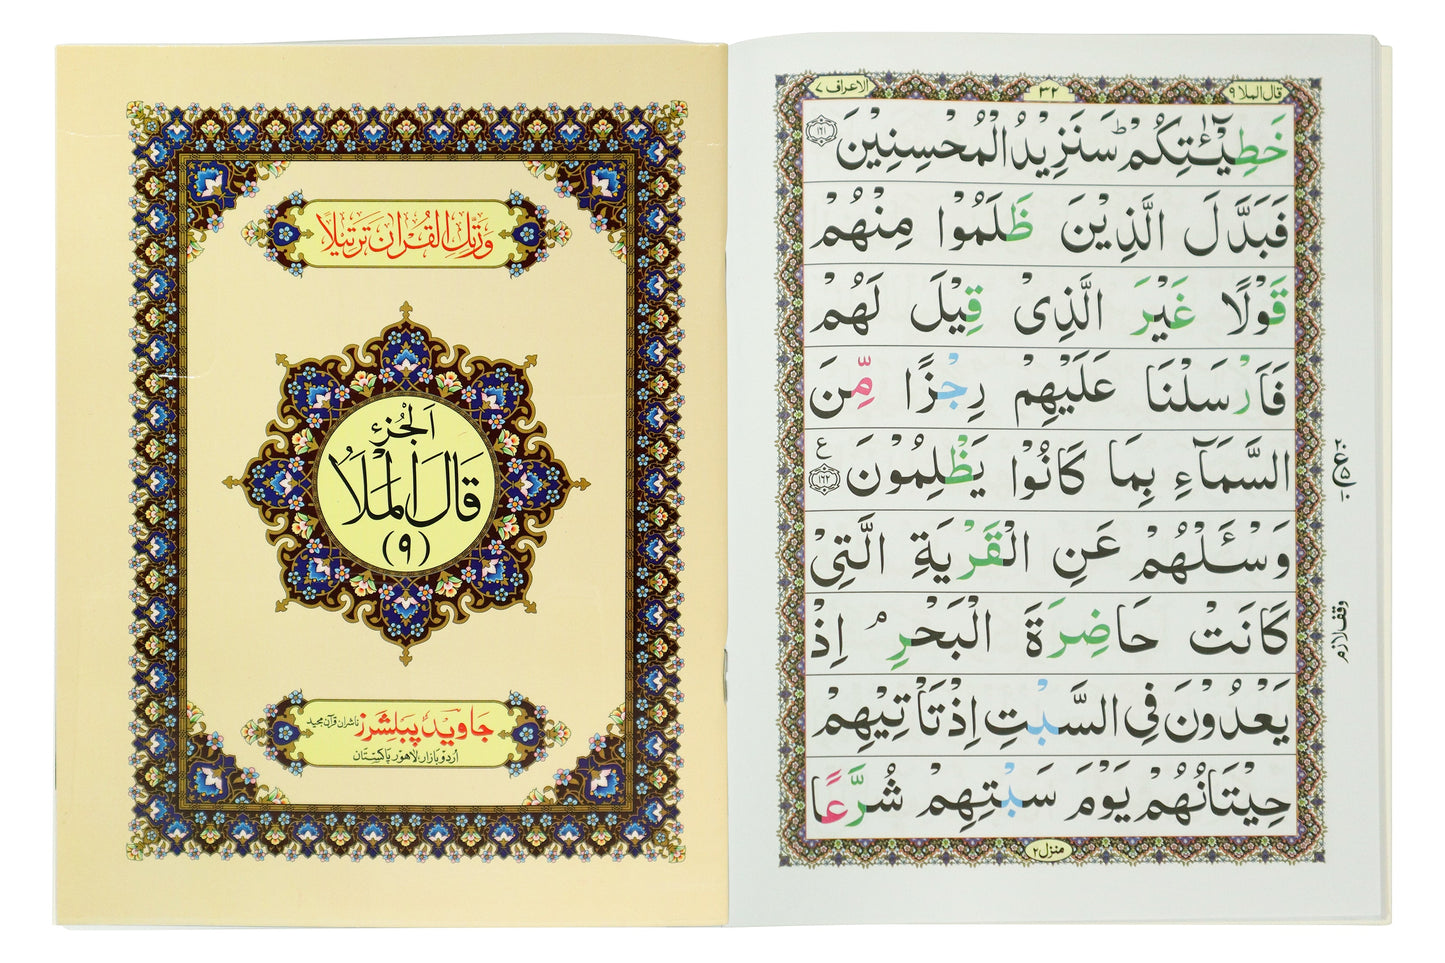 وَرَتِّلِ الْقُرْاٰنَ تَرْتِيْلًا
اَلْجُزْء
قَالَ الْمَلَاُ
(٩)
جاوید پبلشرز ناشران قرآن مجید
اردو بازار، لاہور پاکستان
قال الملا ٩
٣٢
الاعراف ٧
خَطِيْٓـٰٔـتِكُمْ ؕ سَنَزِيْدُ الْمُحْسِنِيْنَ ١٦١
فَبَدَّلَ الَّذِيْنَ ظَلَمُوْا مِنْهُمْ
قَوْلًا غَيْرَ الَّذِىْ قِيْلَ لَهُمْ
فَاَرْسَلْنَا عَلَيْهِمْ رِجْزًا مِّنَ
السَّمَآءِ بِمَا كَانُوْا يَظْلِمُوْنَ ١٦٢ ع
وَسْـَٔـلْهُمْ عَنِ الْقَرْيَةِ الَّتِىْ
كَانَتْ حَاضِرَةَ الْبَحْرِ ۘ اِذْ
يَعْدُوْنَ فِى السَّبْتِ اِذْ تَاْتِيْهِمْ
حِيْتَانُهُمْ يَوْمَ سَبْتِهِمْ شُرَّعًا
وقف لازم
منزل ٢